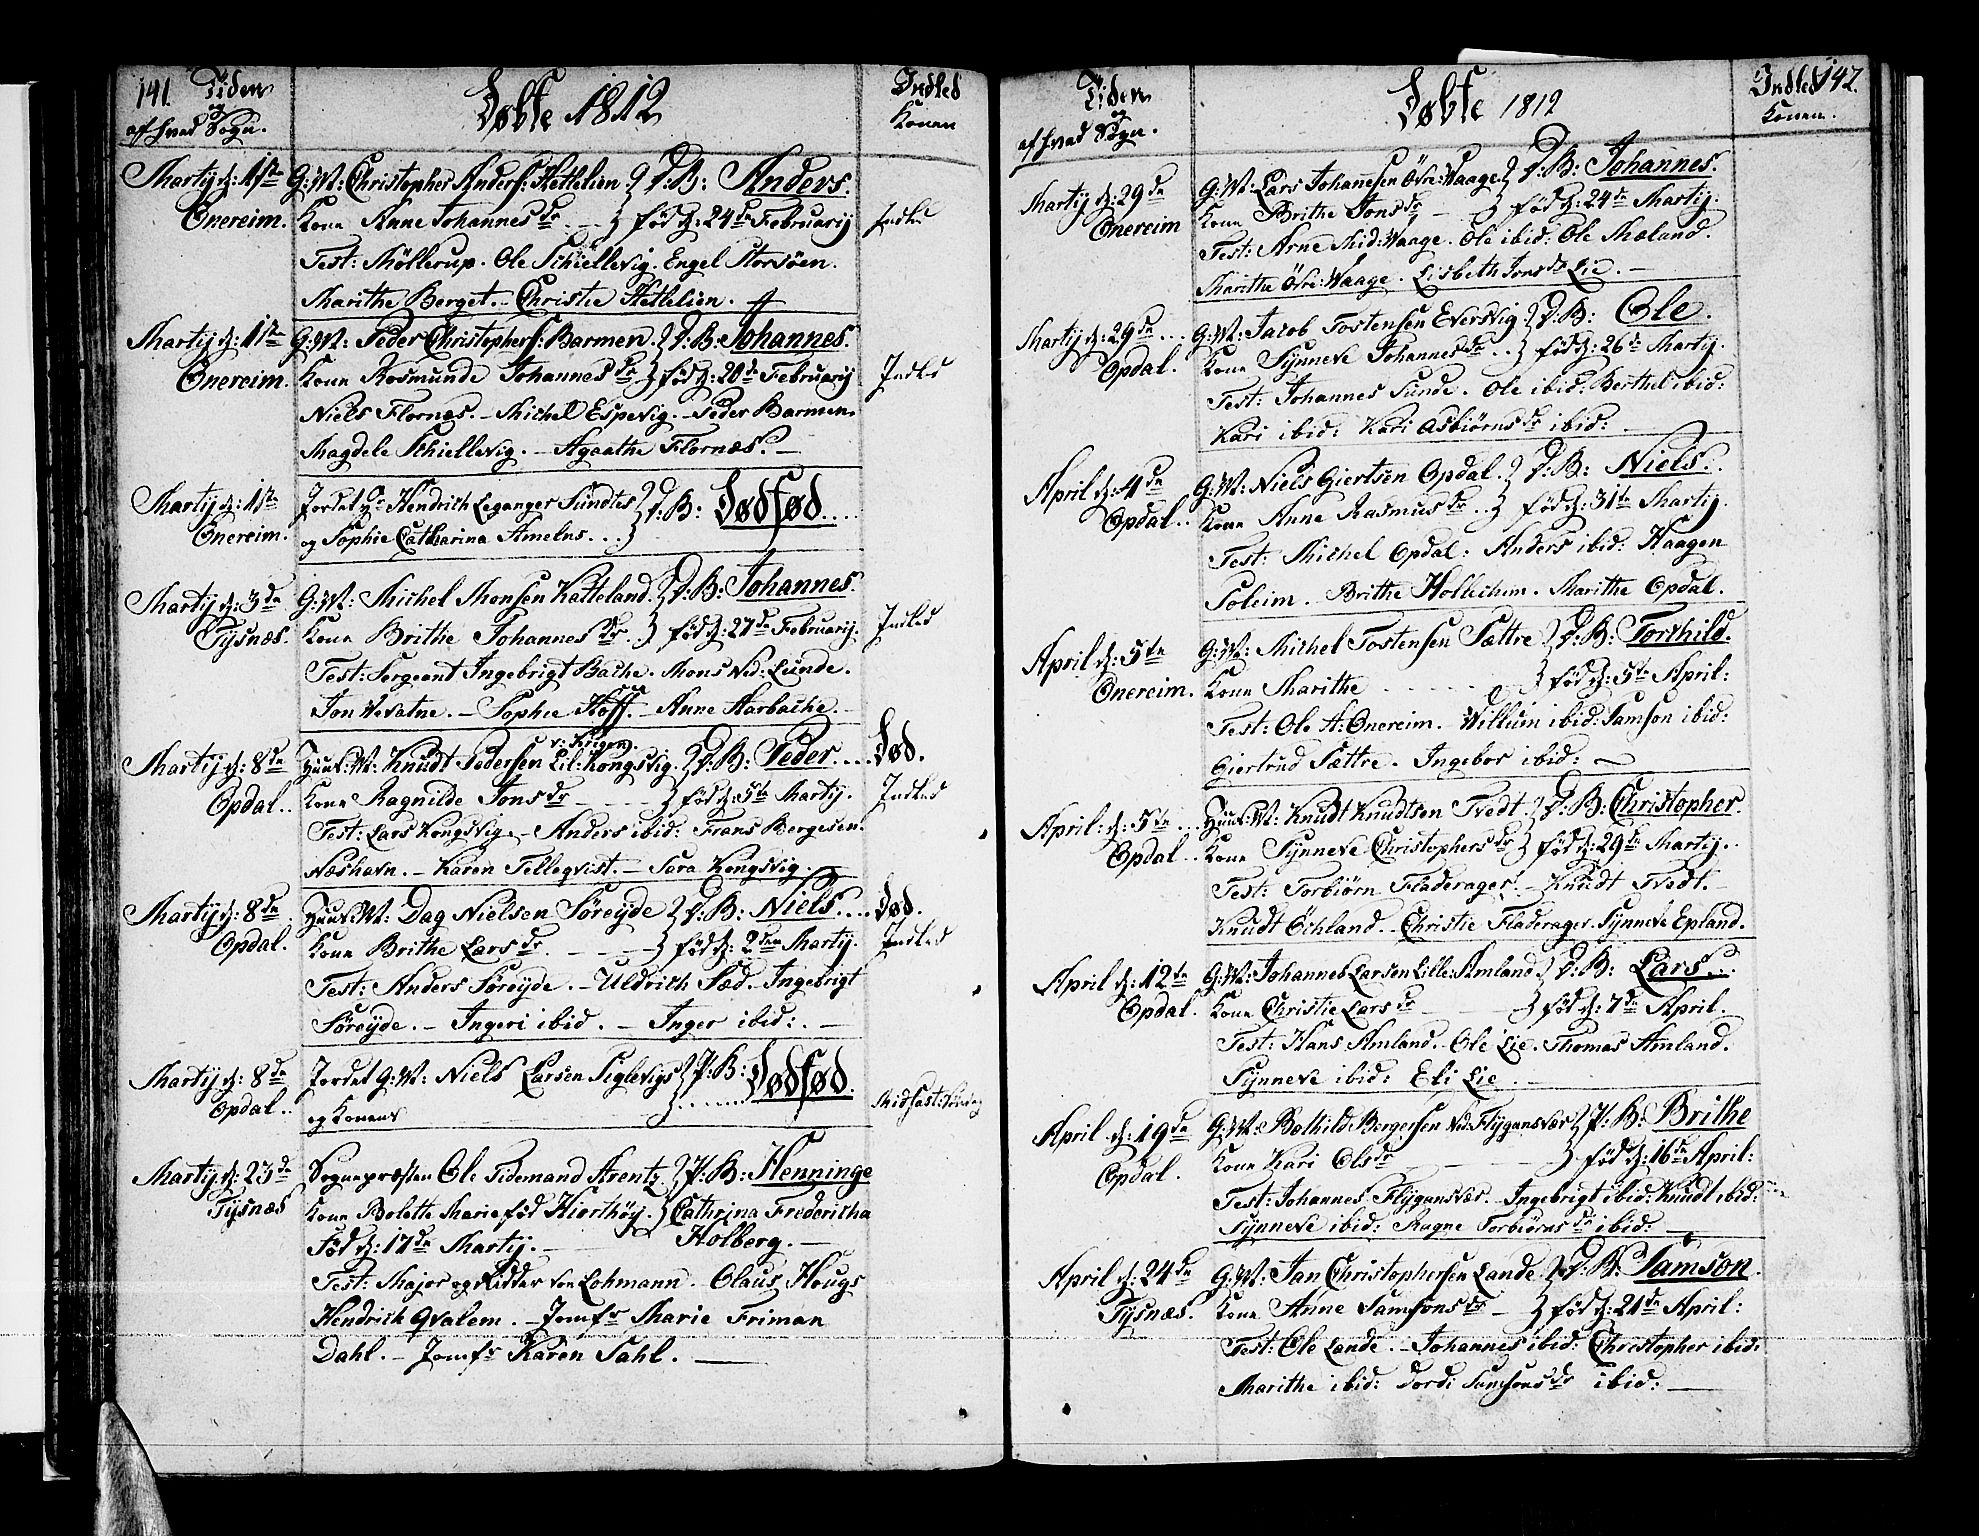 141. Tiden
og
af hvad Sogn.
Døbte 1812
Indled
Konen
Martij d: 1ste G: M: Christopher Anders: Hettelien D: B: Anders.
Onereim. Kone Anne Johannesdr. - fød d: 24de Februarij Indled
Test: Møllerup. Ole Schiellevig. Engel Storsöen.
Marithe Berget. - Christie Hettelien.
Martij d: 1ste G: M: Peder Christophers: Barmen. D: B: Johannes.
Onereim. Kone Rosmunde Johannesdr fød d: 20de Februarij Indled
Niels Flornæs. - Michel Espevig. - Peder Barmen.
Magdele Schiellevig. - Agaathe Flornæs. -
Martij d: 1ste Jordet Hr Hendrich Leganger Sundtes D: B: Dødfød....
Onereim. og Sophie Catharina Amelns...
Martij d: 3de G: M: Michel Monsen Katteland. D: B: Johannes.
Tysnæs. Kone Brithe Johannesdr. fød d: 27de Februarij. Indled
Test: Sergeant Ingebrigt Bache. Mons Ned: Lunde.
Jon Vevatne. - Sophie Hoff. - Anne Harbache. -
Martij d: 8de Huus: M: Knudt Pedersen Lil: Kongsvig. D: B: Peder.... Død.
Opdal.. Kone Ragnilde Jonsdr - fød d: 5te Martij. Indled
Test: Lars Kongsvig. - Anders ibid: Frans Bergesen.
Næshavn. - Karen Telleqvist. - Sara Kongsvig.
Martij d: 8de Huus: M: Dag Nielsen Søreyde D: B: Niels.... Død.
Opdal. Kone Brithe Larsdr. - fød d: 2den Martij. Indled
Test: Anders Søreyde. - Uldrich Sæd. Ingebrigt
Søreyde. - Ingeri ibid. - Inger ibid: -
Martij d: 8de Jordet G: M: Niels Larsen Siglevigs P: B: Dødfød.
Opdal.. og Konens ....... Midfast: Søndag
Martij d: 23de Sognepræsten Ole Tidemand Arentz. P: B: Henninge
Tysnæs Kone Bolette Marie fød Hiorthøy. Cathrina Fredericha
Fød d: 17de Martij. - Holberg. -
Test: Major og Ridder von Lohmann. Claus Hougs
Hendrich Qvalem. - Jomfr Marie Friman
Dahl. - Jomfr Karen Sahl. -
Tiden
og
af hvad Sogn.
Døbte 1812
Indled 142.
Konen.
Martij d: 29de G: M: Lars Johannesen Øvre: Vaage D: B: Johannes.
Onereim Kone Brithe Jonsdr - fød d: 24de Martij.
Test: Arne Mid: Vaage. Ole ibid: Ole Mæland.
Marithe Øvre: Vaage. Lisbeth Jonsdr Lie. -
Martij d: 29de... G: M: Jacob Tostensen Eversvig D: B: Ole.
Opdal. Kone Synneve Johannesdr.. fød d: 26de Martij.
Test: Johannes Sunde. Ole ibid: Berthel ibid:
Kari ibid: Kari Asbiørnsdr ibid: -
April d: 4de G: M: Niels Giertsen Opdal. D: B: Niels..
Opdal.. Kone Anne Rasmusdr.. fød d: 31te Martij.
Test: Michel Opdal: Anders ibid: Haagen
Soleim. - Brithe Hollechim. Marithe Opdal.
April d: 5te G: M: Michel Tostensen Sættre D: B: Torchild.
Onereim. Kone Marithe ...... fød d: 5te April:
Test: Ole H: Onereim. Willum ibid: Samson ibid:
Giertrud Sættre. Ingebor ibid: -
April: d: 5te... Huus: M: Knudt Knudtsen Tvedt. D: B: Christopher.
Opdal.. Kone Synneve Christophersdr fød d: 29de Martij.
Test: Torbiørn Fladerager. - Knudt Tvedt. -
Knudt Øchland. - Christie Fladerager. Synneve Epland.
April d: 12te G: M: Johannes Larsen Lille: Amland D: B: Lars...
Opdal. Kone Christie Larsdr - fød d: 7de April.
Test: Hans Amland. - Ole Lie. Thomas Amland.
Synneve ibid: Eli Lie. -
April d: 19de G: M: Bothild Bergersen Ned: Flygansvær P: B: Brithe
Opdal. Kone Kari Olsdr - fød d: 16de April:
Test: Johannes Flygansvær. - Ingebrigt ibid: Knudt ibid:
Synneve ibid: Magne Torbiørnsdr ibid: -
April d: 24de G: M: Jan Christophersen Lande. D: B: Samson.
Tysnæs. Kone Anne Samsonsdr - fød d: 21de April:
Test: Ole Lande. - Johannes ibid: Christopher ibid:
Marithe ibid: Dordi Samsonsdr ibid: -